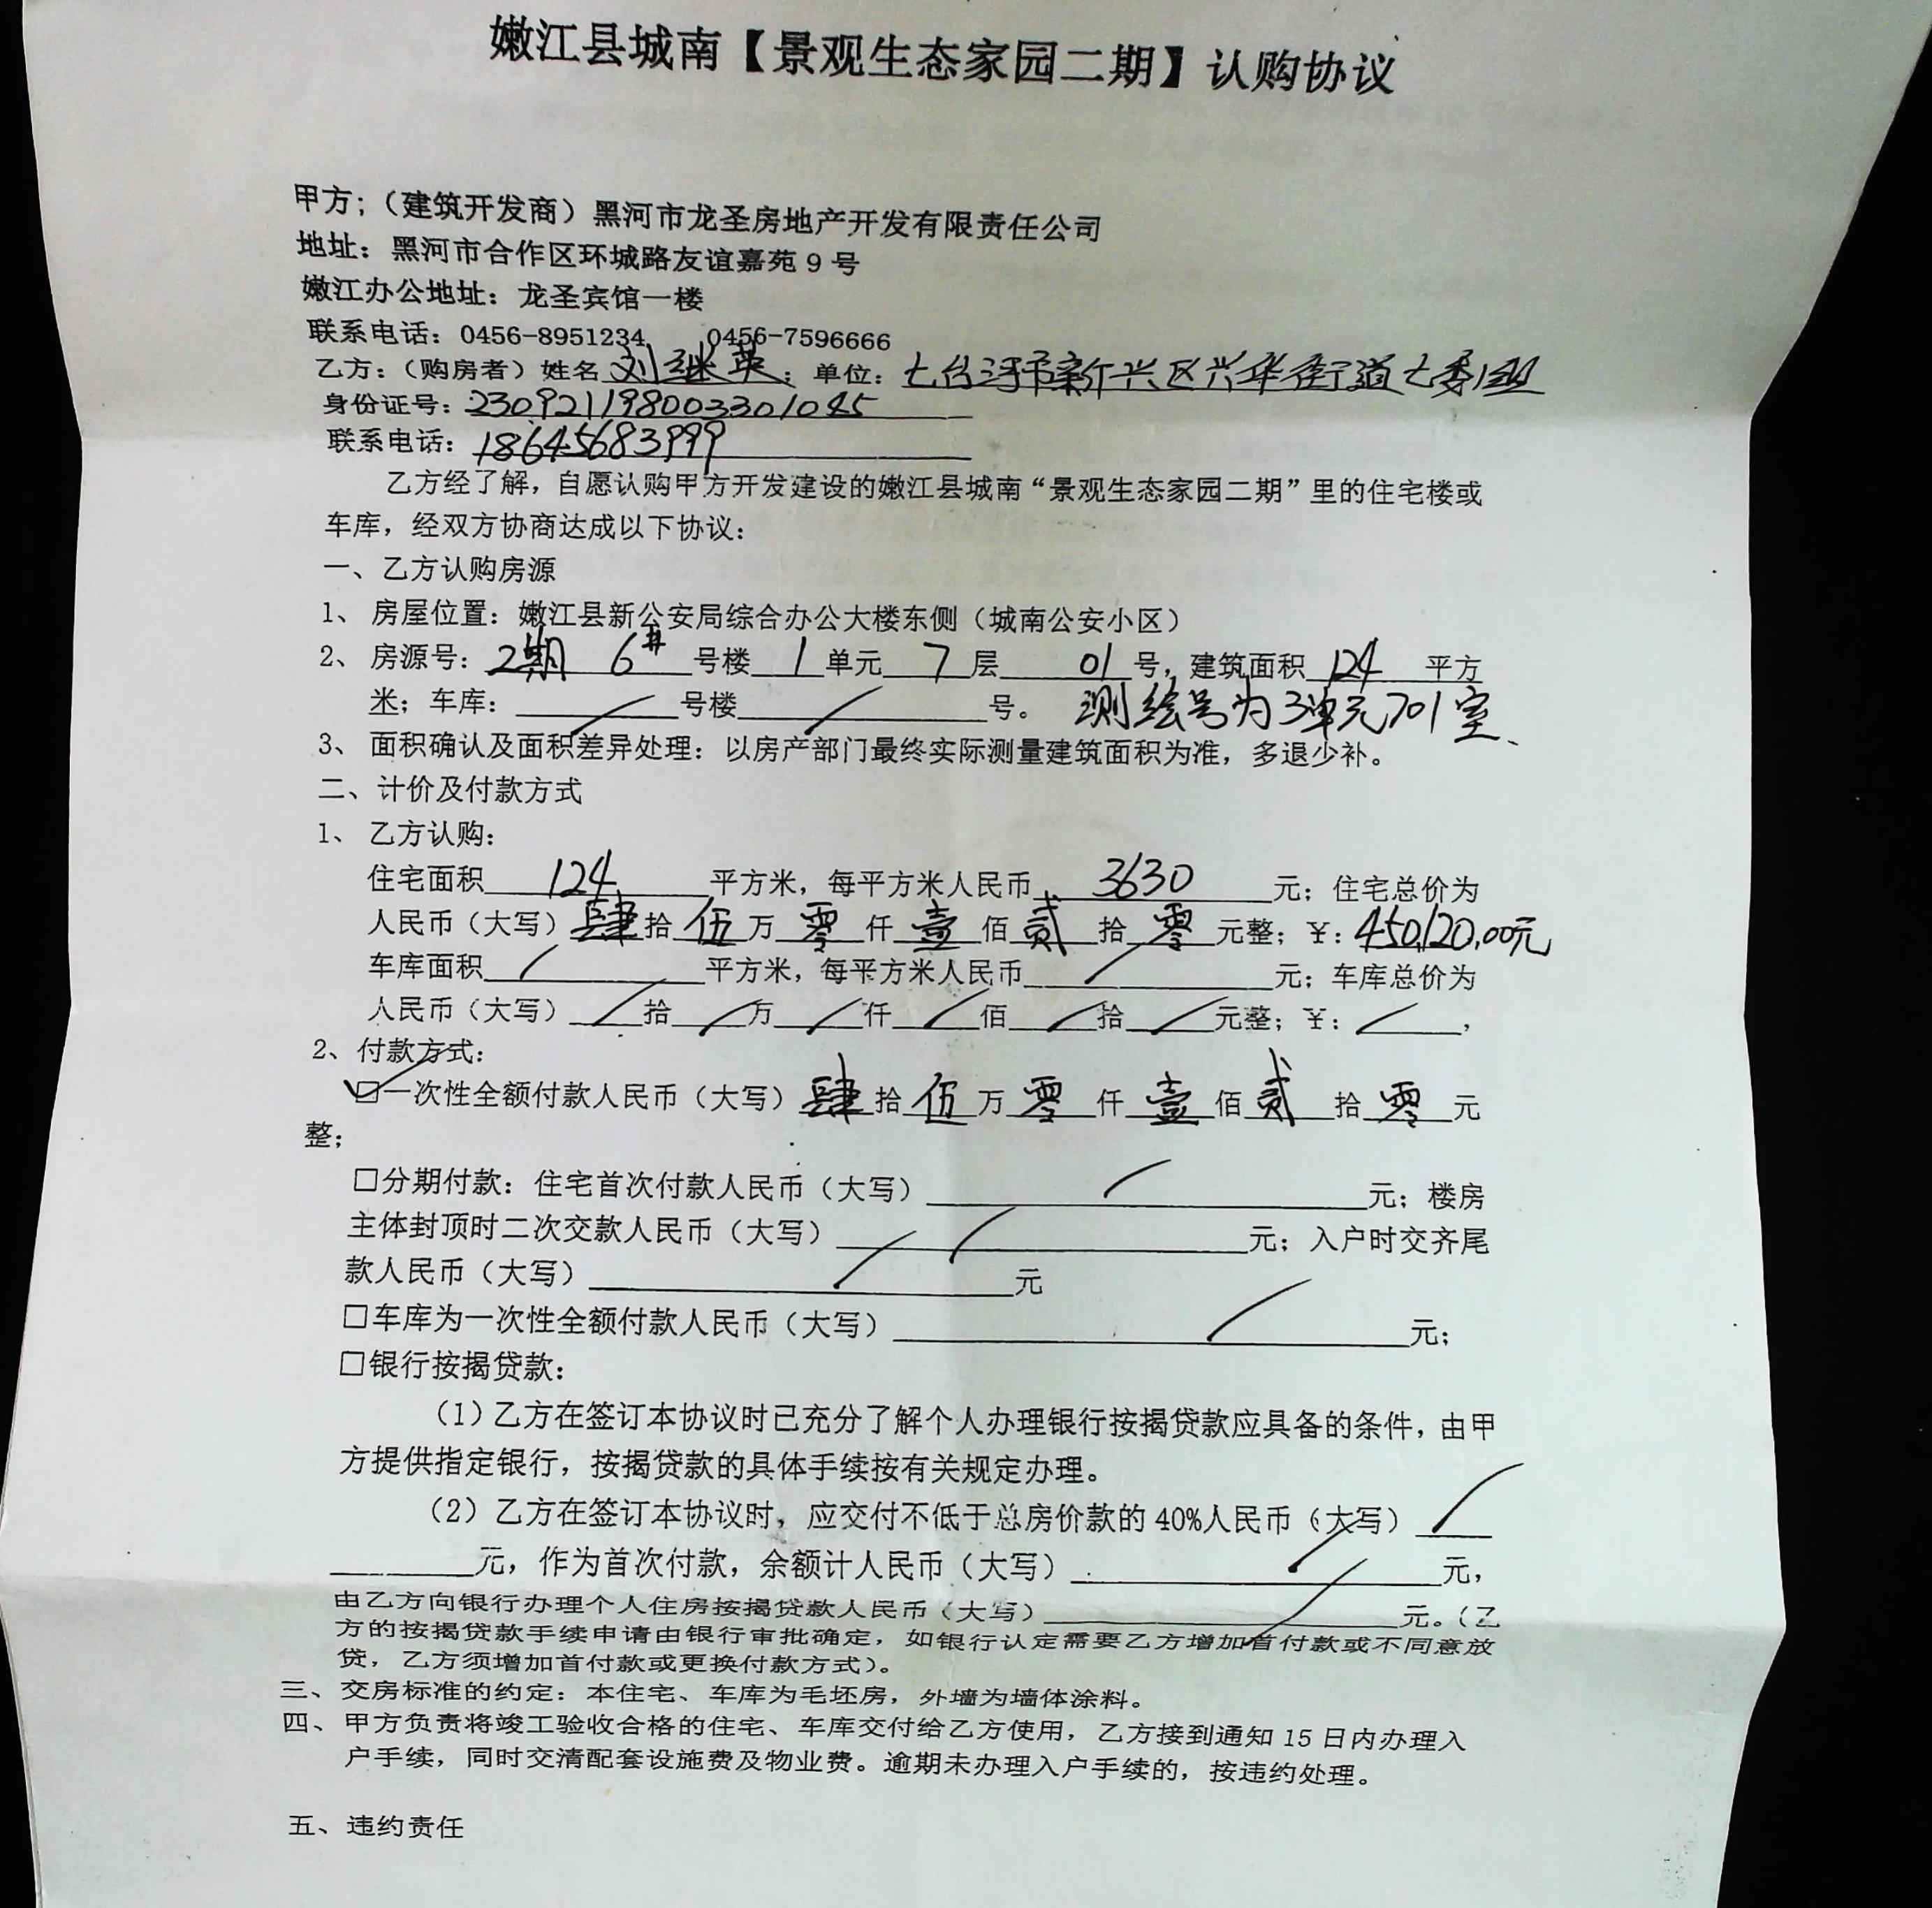 嫩江县城南【景观生态家园二期】认购协议
甲方;（建筑开发商）黑河市龙圣房地产开发有限责任公司
地址：黑河市合作区环城路友谊嘉苑9号
嫩江办公地址：龙圣宾馆一楼
联系电话：0456-8951234 0456-7596666
乙方：（购房者）姓名刘继英；单位：七台河市新兴区兴华街道七委1组
身份证号：230921198003301045
联系电话：18645683999
乙方经了解，自愿认购甲方开发建设的嫩江县城南“景观生态家园二期”里的住宅楼或
车库，经双方协商达成以下协议：
一、乙方认购房源
1、房屋位置：嫩江县新公安局综合办公大楼东侧（城南公安小区）
2、房源号：2期 6# 号楼 1 单元 7 层 01 号，建筑面积 124 平方
米；车库：／号楼／号。 测绘号为3单元701室、
3、面积确认及面积差异处理：以房产部门最终实际测量建筑面积为准，多退少补。
二、计价及付款方式
1、乙方认购：
住宅面积 124 平方米，每平方米人民币 3630 元；住宅总价为
人民币（大写）肆拾伍万零仟壹佰贰拾零元整；￥：450,120.00元
车库面积／平方米，每平方米人民币／元；车库总价为
人民币（大写）／拾／万／仟／佰／拾／元整；￥：／，
2、付款方式：
☑一次性全额付款人民币（大写）肆拾伍万零仟壹佰贰拾零元
整；
□分期付款：住宅首次付款人民币（大写）／元；楼房
主体封顶时二次交款人民币（大写）／元；入户时交齐尾
款人民币（大写）／元
□车库为一次性全额付款人民币（大写）／元；
□银行按揭贷款：
（1）乙方在签订本协议时已充分了解个人办理银行按揭贷款应具备的条件，由甲
方提供指定银行，按揭贷款的具体手续按有关规定办理。
（2）乙方在签订本协议时，应交付不低于总房价款的40%人民币（大写）／
元，作为首次付款，余额计人民币（大写）／元，
由乙方向银行办理个人住房按揭贷款人民币（大写）／元。（乙
方的按揭贷款手续申请由银行审批确定，如银行认定需要乙方增加首付款或不同意放
贷，乙方须增加首付款或更换付款方式）。
三、交房标准的约定：本住宅、车库为毛坯房，外墙为墙体涂料。
四、甲方负责将竣工验收合格的住宅、车库交付给乙方使用，乙方接到通知15日内办理入
户手续，同时交清配套设施费及物业费。逾期未办理入户手续的，按违约处理。
五、违约责任